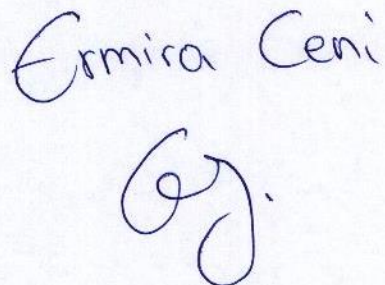 Ermira Ceni